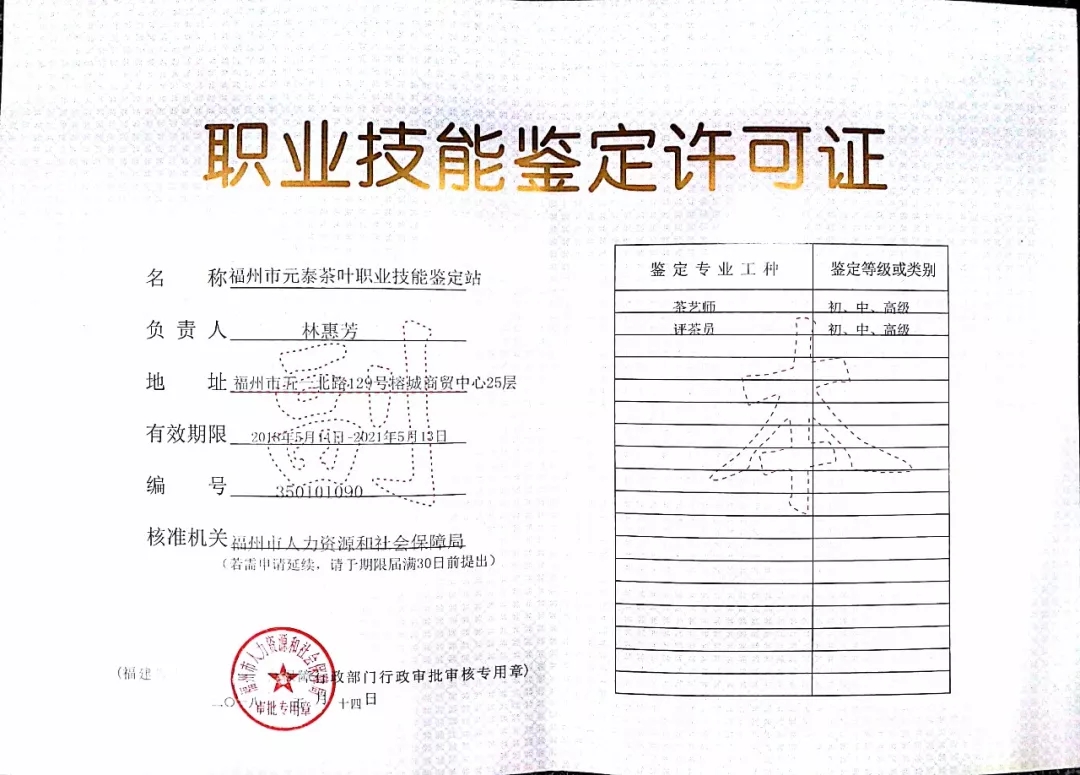 职业技能鉴定许可证
名 称 福州市元泰茶叶职业技能鉴定站
负责人 林惠芳
地 址 福州市五一北路129号榕城商贸中心25层
有效期限 2018年5月14日-2021年5月13日
编 号 350101090
核准机关 福州市人力资源和社会保障局
(若需申请延续，请于期限届满30日前提出)
鉴定专业工种 鉴定等级或类别
茶艺师 初、中、高级
评茶员 初、中、高级
副本
福州市人力资源和社会保障局
审批专用章
(福建 行政部门行政审批审核专用章)
二〇一八 五 月 十四 日